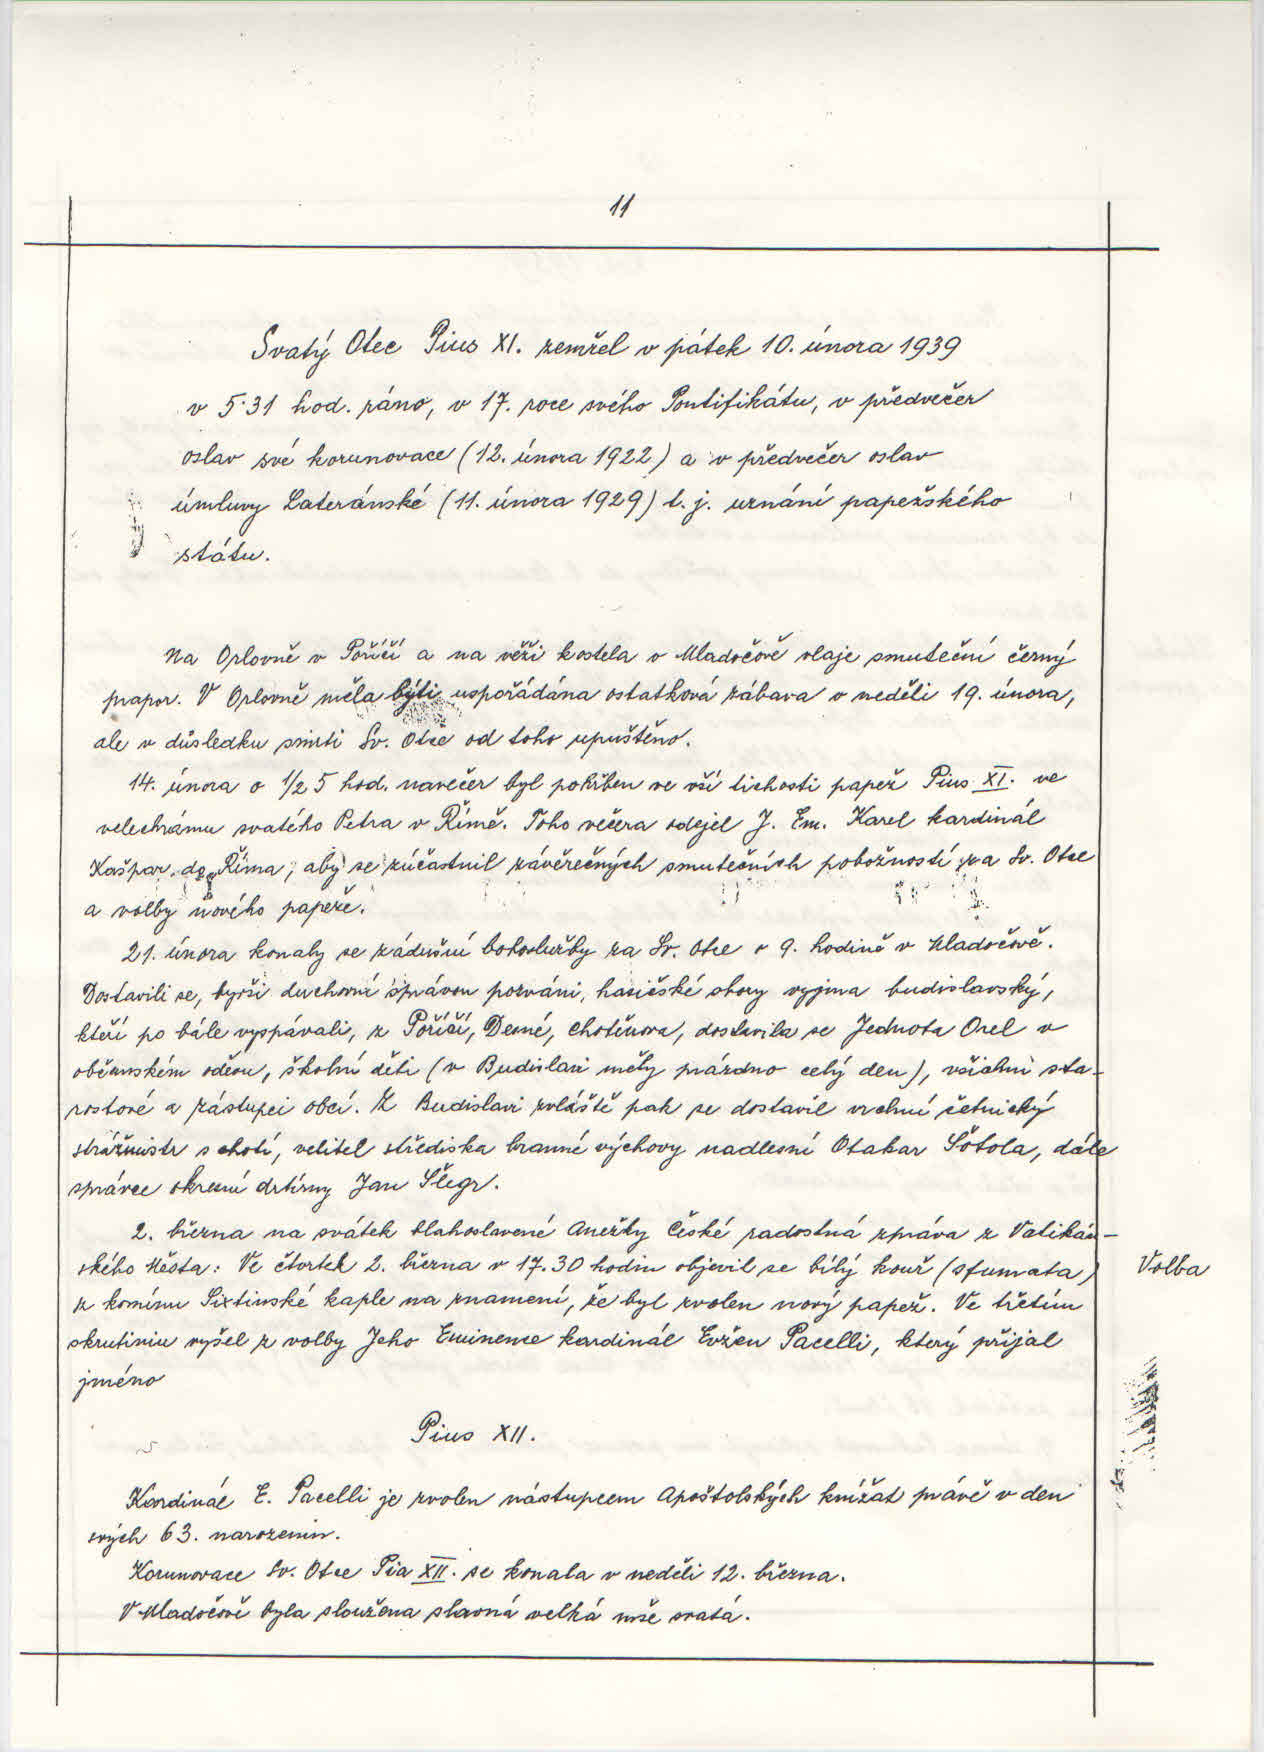 11
Svatý Otec Pius XI. zemřel v pátek 10. února 1939
v 5·31 hod. ráno, v 17. roce svého Pontifikátu, v předvečer
oslav své korunovace (12. února 1922) a v předvečer oslav
úmluvy Lateránské (11. února 1929) t. j. uznání papežského
státu.
Na Orlovně v Poříčí a na věži kostela v Mladočově vlaje smuteční černý
prapor. V Orlovně měla býti uspořádána ostatková zábava v neděli 19. února,
ale v důsledku smrti Sv. Otce od toho upuštěno.
14. února o 1/2 5 hod. navečer byl pohřben ve vší tichosti papež Pius XI. ve
velechrámu svatého Petra v Římě. Toho večera odejel J. Em. Karel kardinál
Kašpar do Říma, aby se zúčastnil závěrečných smutečních pobožností za Sv. Otce
a volby nového papeže.
21. února konaly se zádušní bohoslužby za Sv. Otce o 9. hodině v Mladočově.
Dostavili se, byvši duchovní správou pozváni, hasičské sbory vyjma budislavský,
kteří po bále vyspávali, z Poříčí, Desné, Chotěnova, dostavila se Jednota Orel v
občanském oděvu, školní děti (v Budislavi měly prázdno celý den), všichni sta-
rostové a zástupci obcí. Z Budislavi zvláště pak se dostavil vrchní četnický
strážmistr s chotí, velitel střediska branné výchovy nadlesní Otakar Šotola, dále
správce okresní drtírny Jan Šlegr.
2. března na svátek blahoslavené Anežky České radostná zpráva z Vatikán-
ského Města: Ve čtvrtek 2. března v 17.30 hodin objevil se bílý kouř (sfumata)
Volba
z komínu Sixtinské kaple na znamení, že byl zvolen nový papež. Ve třetím
skrutiniu vyšel z volby Jeho Eminence kardinál Evžen Pacelli, který přijal
jméno
Pius XII.
Kardinál E. Pacelli je zvolen nástupcem Apoštolských knížat právě v den
svých 63. narozenin.
Korunovace Sv. Otce Pia XII. se konala v neděli 12. března.
V Mladočově byla sloužena slavná velká mše svatá.